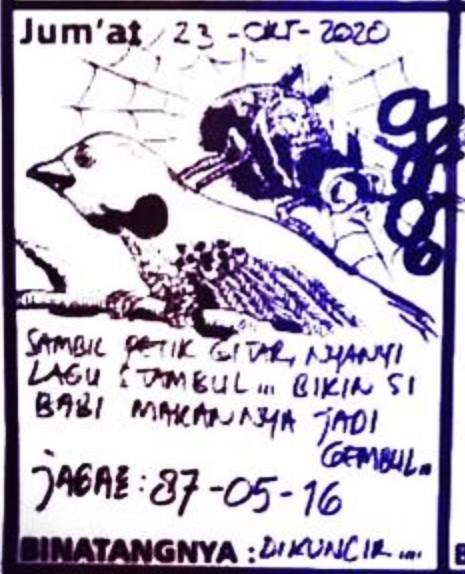 Jum'at, 23-OKT-2020
SAMBIL PETIK GITAR, NYANYI
LAGU STAMBUL... BIKIN SI
BABI MAKANNYA JADI
GEMBUL..
JAGAE: 87-05-16
BINATANGNYA : DIKUNCIR....